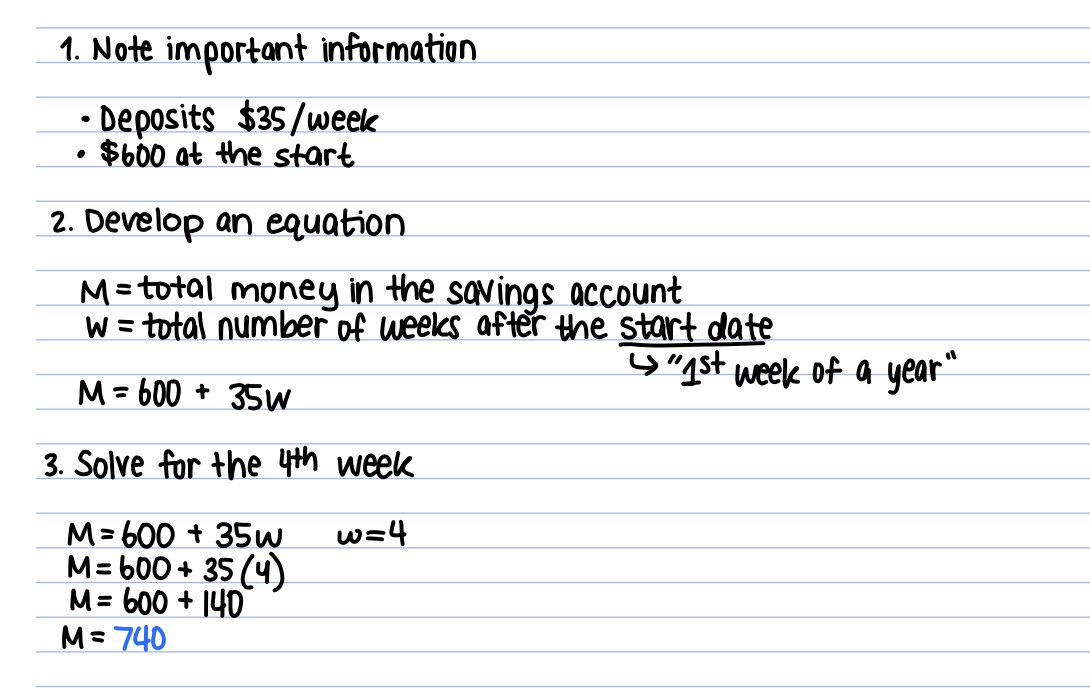 1. Note important information
• Deposits $35/week
• $600 at the start
2. Develop an equation
M = total money in the savings account
W = total number of weeks after the start date
↳ "1st week of a year"
M = 600 + 35w
3. Solve for the 4th week
M = 600 + 35w w=4
M = 600 + 35(4)
M = 600 + 140
M = 740